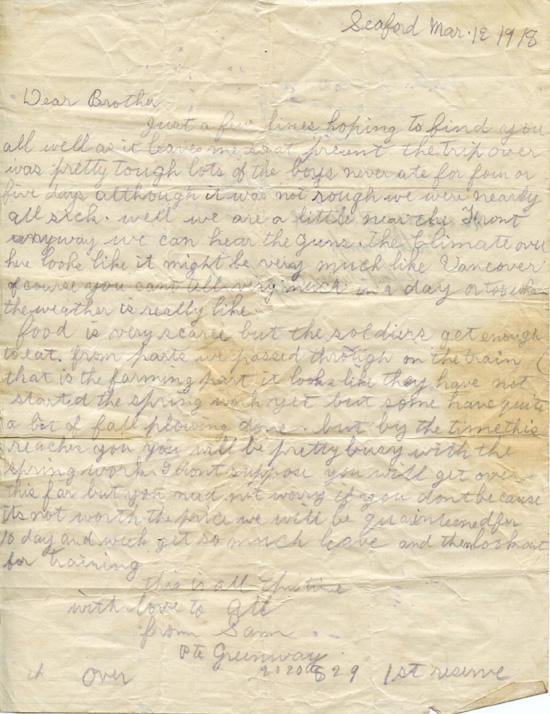 Seaford Mar. 12 1918
Dear Brother
Just a few lines hoping to find you
all well as it leaves me at present the trip over
was pretty tough lots of the boys never ate for four or
five days although it was not rough we were nearly
all sick. well we are a little near the Front
anyway we can hear the guns. the Climate over
here looks like it might be very much like Vancouver
of course you cant tell very much in a day or to
the weather is really like
food is very scarce but the soldiers get enough
to eat. from parts we passed through on the train
that is the farming part it looks like they have not
started the spring work yet but some have quite
a bit of fall plowing done. but by the time this
reaches you you will be pretty busy with the
spring work. I dont suppose you will get over
this far but you need not worry if you dont because
its not worth the price we will be
10 day and get so much leave and then
for training
this is all
with love to all
from Sam
Pte Greenway
829 1st reserve
over